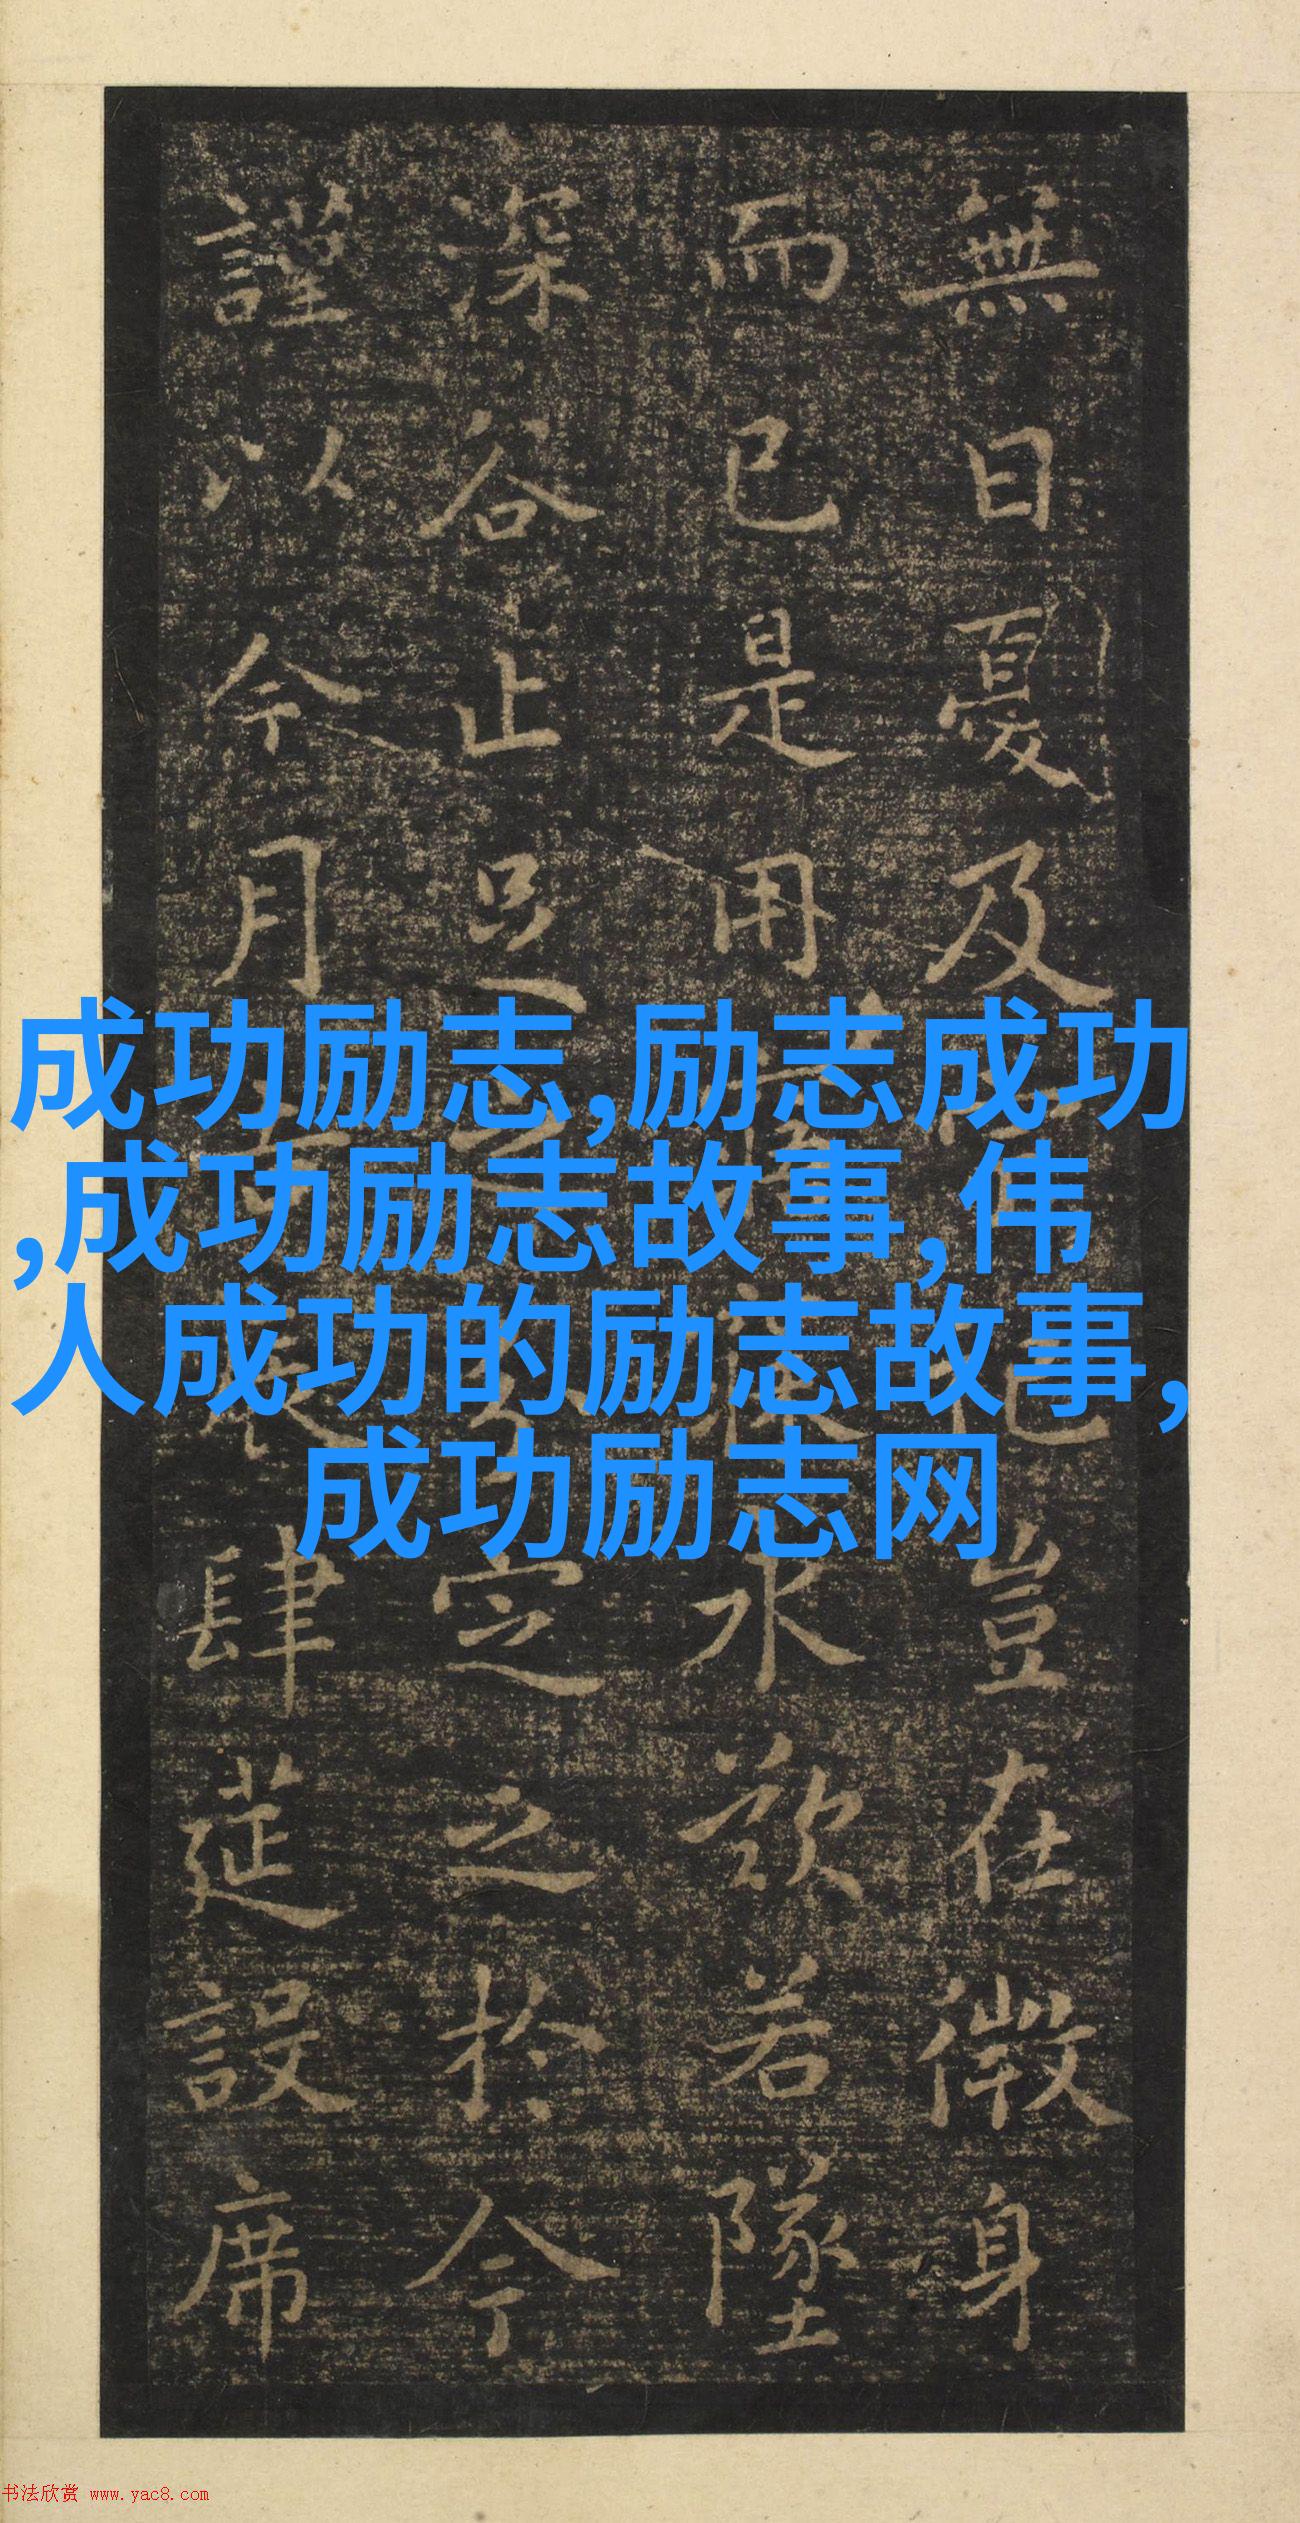 無日憂及豈在微身
而已是用永歎若墜
深谷止足定之於今
謹以今月肆筵設席
成功励志,励志成功
,成功励志故事,伟
人成功的励志故事,
成功励志网
书法欣赏 www.yac8.com